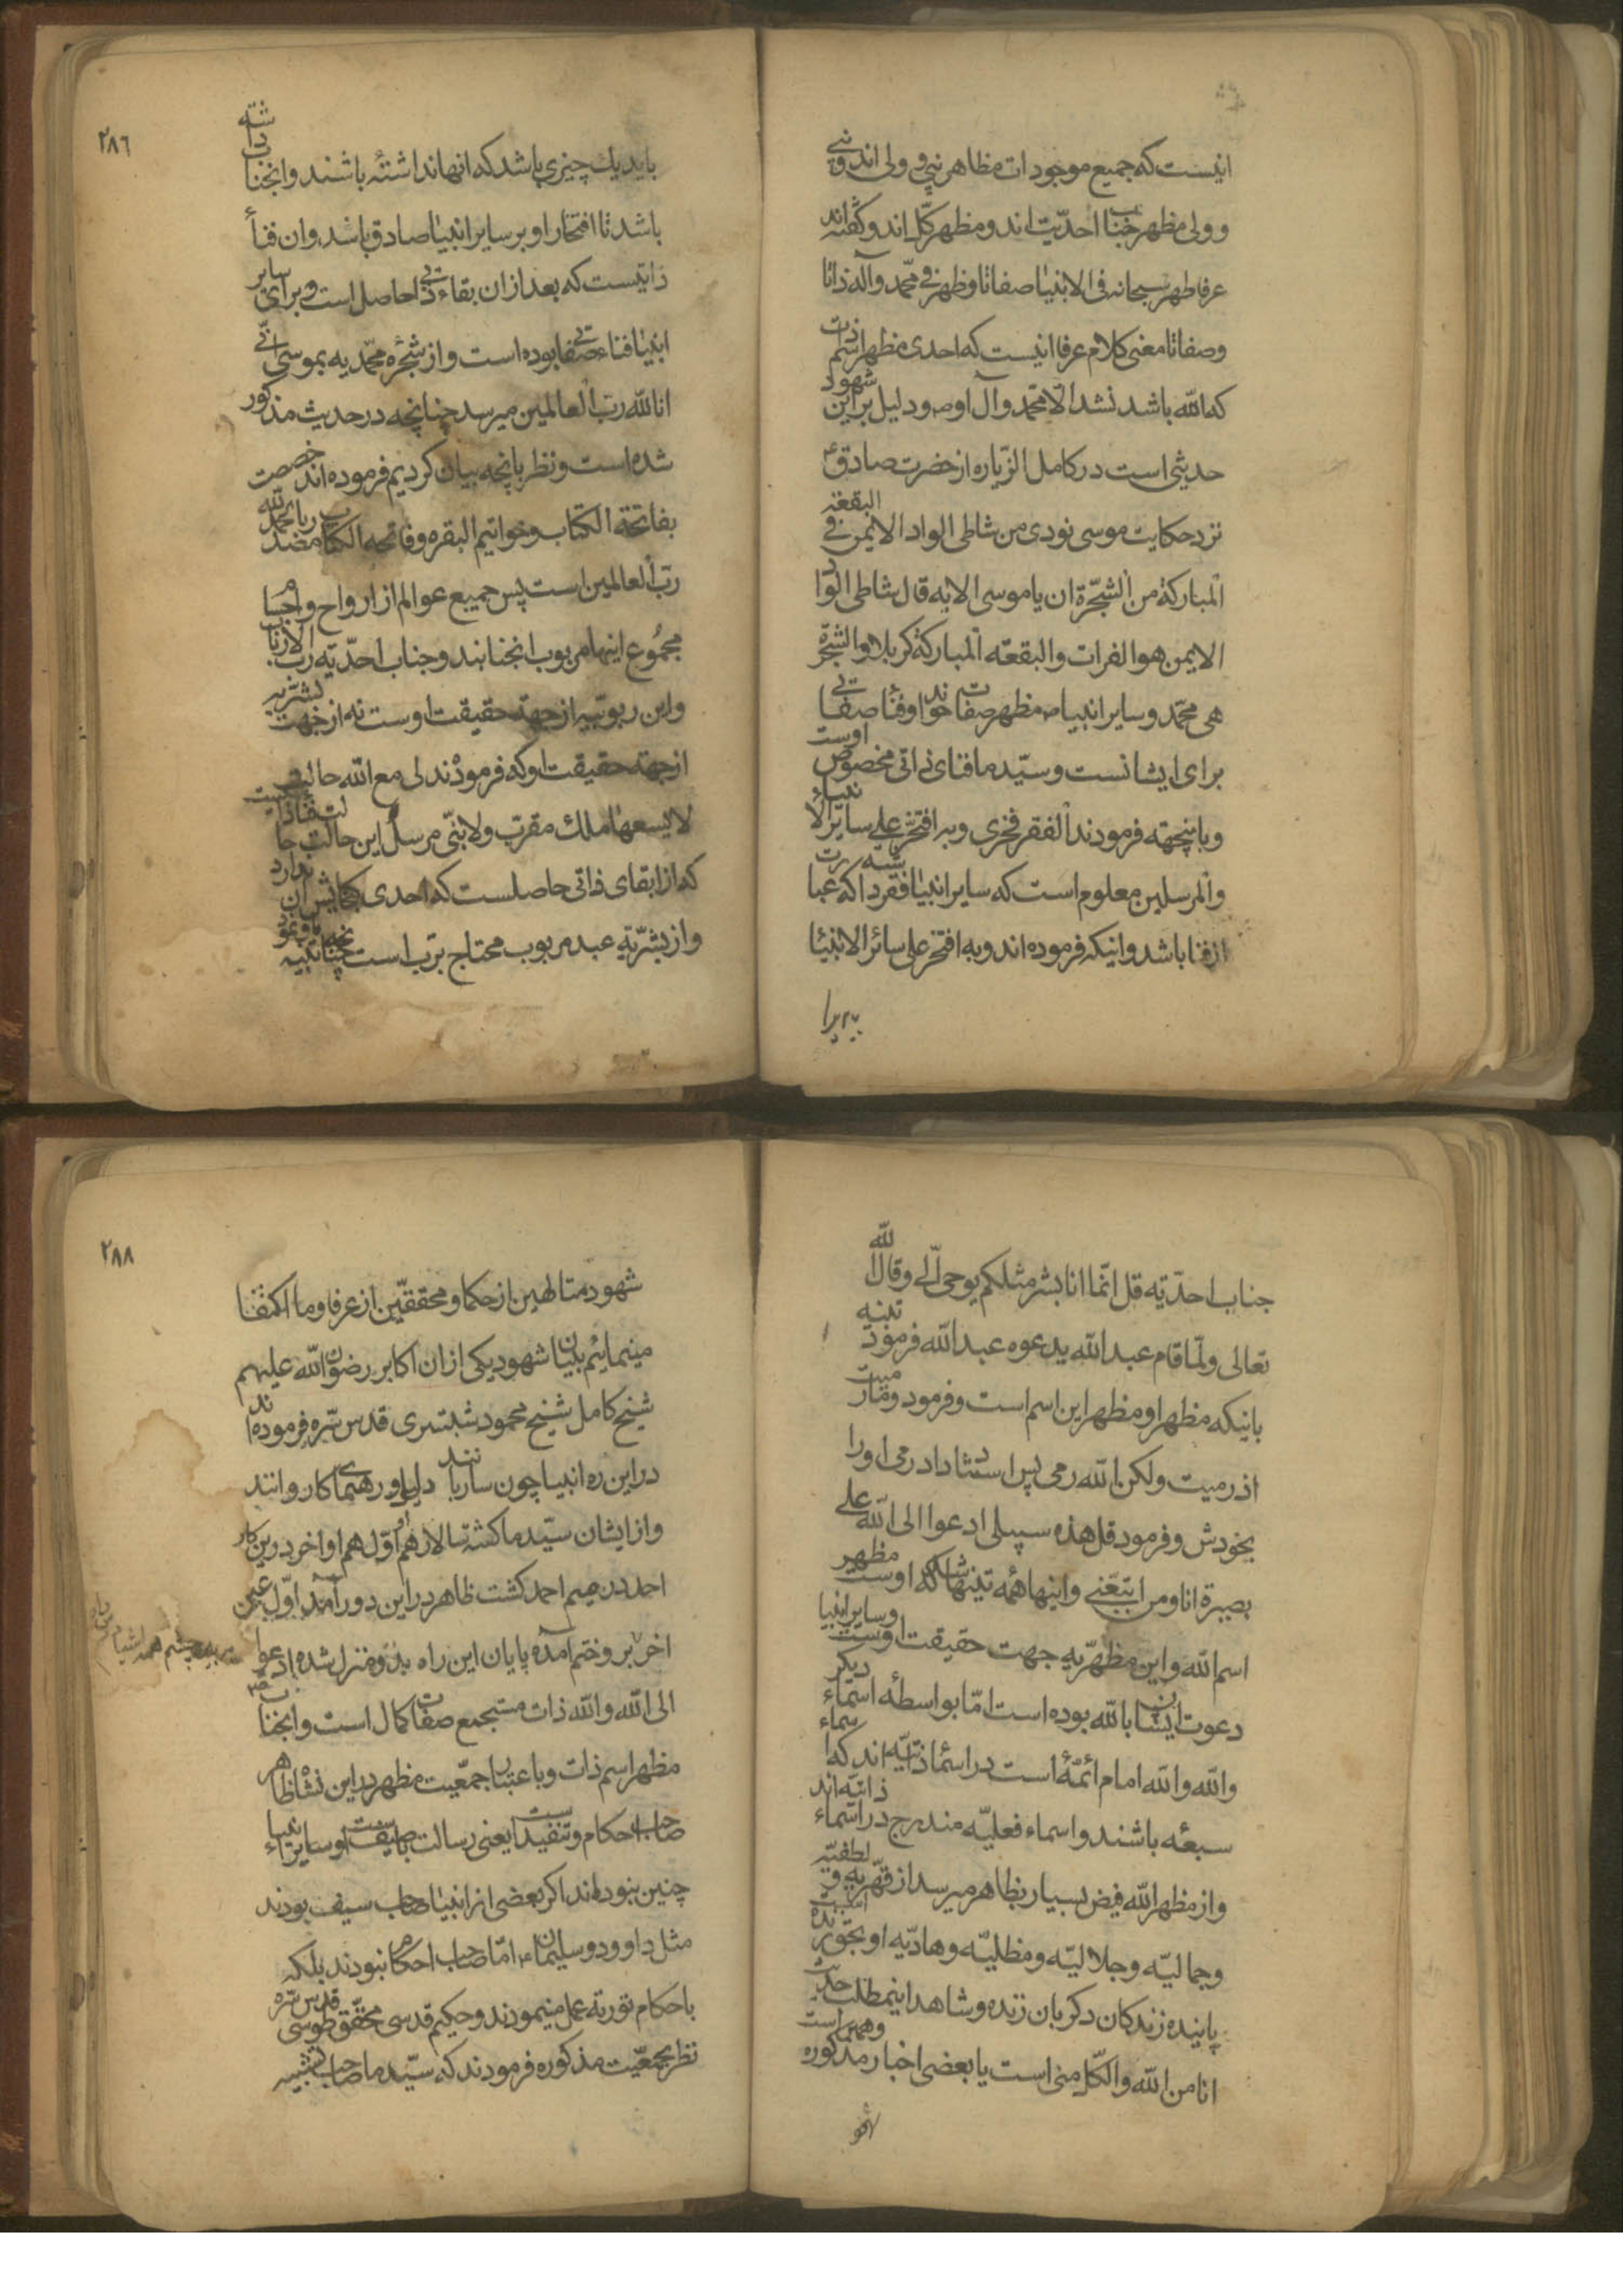 اینست که جمیع موجودات مظاهر نبی و ولی اند و نبی
و ولی مظهر جناب احدیّت اند و مظهر کلّ اند و گفته اند
عرفا ظهر سبحانه فی الانبیا صفاتا و ظهر فی محمّد و آله ذاتا
و صفاتا معنی کلام عرفا اینست که احدی مظهر اسم ذات
که الله باشد نشد الّا محمّد و آل او ص و دلیل بر این شهود
حدیثی است در کامل الزیاره از حضرت صادق ع
نزد حکایت موسی نودی من شاطی الواد الایمن فی البقعة
المبارکة من الشجّرة ان یا موسی الایه قال شاطی الواد
الایمن هو الفرات والبقعه المبارکة کربلا والشجّرة
هی محمّد و سایر انبیا مظهر صفات خواند و فنا صفاتی
برای ایشانست و سیّد ما فنای ذاتی مخصوص اوست
و باینجهته فرمودند الفقر فخری و به افتخر علی سایر الانبیاء
والمرسلین معلوم است که سایر انبیا فقر داشته که عبارت
از فنا باشد و اینکه فرموده اند و به افتخر علی سائر الانبیا
٢٨٦
باید یك چیزی باشد که انها نداشته باشند و انجناب داشته
باشد تا افتخار او بر سایر انبیا صادق باشد و ان فنأ
ذاتیست که بعد از ان بقاء ذاتی حاصل است و برای سایر
انبیا فناء صفاتی بوده است و از شجرهٔ محمّدیه بموسی انّی
انا الله ربّ العالمین میرسد چنانچه در حدیث مذکور
شده است و نظر بانچه بیان کردیم فرموده اند خصصت
بفاتحة الکتاب و خواتیم البقره و فاتحه الکتاب مصدر بالحمد لله
ربّ العالمین است پس جمیع عوالم از ارواح و اجسام
مجموع اینها مربوب انجنابند و جناب احدّیه ربّ الارباب
و این ربوبیه از جهة حقیقت اوست نه از جهت بشریّه
از جهة حقیقت او که فرمودند لی مع الله حالت
لا یسعها ملك مقرّب و لا نبّی مرسل این حالت حالت فنا ذاتیست
که از ابقای ذاتی حاصلست که احدی گنجایش ان ندارد
و از بشرّیة عبد مربوب محتاج برّب است چنانچه تنبیه باو نمود
جناب احدّیّه قل انّما انا بشر مثلکم یوحی الّی و قال الله
تعالی و لمّا قام عبد الله یدعوه عبد الله فرمود تنبیه
باینکه مظهر او مظهر این اسم است و فرمود و ما رمیت
اذ رمیت ولکن الله رمی پس استناد داد رمی او را
بخودش و فرمود قل هذه سبیلی ادعوا الی الله علی
بصیرة انا و من اتبّعنی و اینها همه تنبیهاست که او مظهر
اسم الله و این مظهرّیه جهت حقیقت اوست و سایر انبیا
دعوت ایشان بالله بوده است امّا بواسطهٔ اسماء دیگر
والله والله امام ائمّهٔ است در اسما ذاتیّه اند که اسماء
سبعه باشند و اسماء فعلیّه مندرج در اسماء ذاتیّه اند
و از مظهر الله فیض بسیار بظاهر میرسد از قهّریه و لطفیّه
و جمالیّه و جلالیّه و مظلیّه و هادیّه او بخور
پاینده زندکان دکر بان زنده و شاهد اینمطلب حدیث
انا من الله والکّل منی است یا بعضی اخبار مذکوره
٢٨٨
شهود متالهین از حکما و محققّین از عرفا و ما اکتفا
مینمائیم بیان شهود یکی از ان اکابر رضوان الله علیهم
شیخ کامل شیخ محمود شبستری قدس سّره فرموده اند
در این ره انبیا چون ساربانند دلیل و رهنمای کاروانند
و از ایشان سیّد ما کشته سالار هم او اوّل هم او اخر در این کار
احد در میم احمد کشت ظاهر در این دور آمد اوّل عین
اخر بر و ختم آمده پایان این راه بدو منزل شده ادعوا
الی الله والله ذات مستجمع صفات کمال است و انجناب
مظهر اسم ذات و باعتبار جمعّیت مظهر در این نشاه ظاهر
صاحب احکام و تنفیذ است یعنی رسالت بسیف او سایر انبیاء
چنین نبوده اند اکر بعضی از انبیا صاحب سیف بودند
مثل داوود و سلیمان ع امّا صاحب احکام نبودند بلکه
باحکام توریة عمل مینمودند و حکیم قدسی محقّق طوسی قدس سّره
نظر بجمعّیت مذکوره فرمودند که سیّد ما صاحب